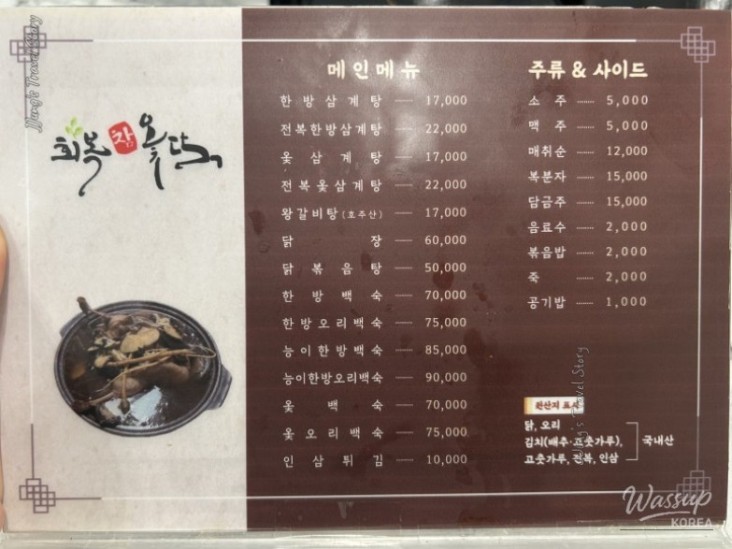 Jjung's Travel Story
회복 참 옻닭
메인메뉴
한방삼계탕 17,000
전복한방삼계탕 22,000
옻삼계탕 17,000
전복옻삼계탕 22,000
왕갈비탕(호주산) 17,000
닭장 60,000
닭볶음탕 50,000
한방백숙 70,000
한방오리백숙 75,000
능이한방백숙 85,000
능이한방오리백숙 90,000
옻백숙 70,000
옻오리백숙 75,000
인삼튀김 10,000
주류 & 사이드
소주 5,000
맥주 5,000
매취순 12,000
복분자 15,000
담금주 15,000
음료수 2,000
볶음밥 2,000
죽 2,000
공기밥 1,000
원산지 표시
닭, 오리
김치(배추·고춧가루), 국내산
고춧가루, 전복, 인삼
Jjung's Travel Story
Wassup
KOREA